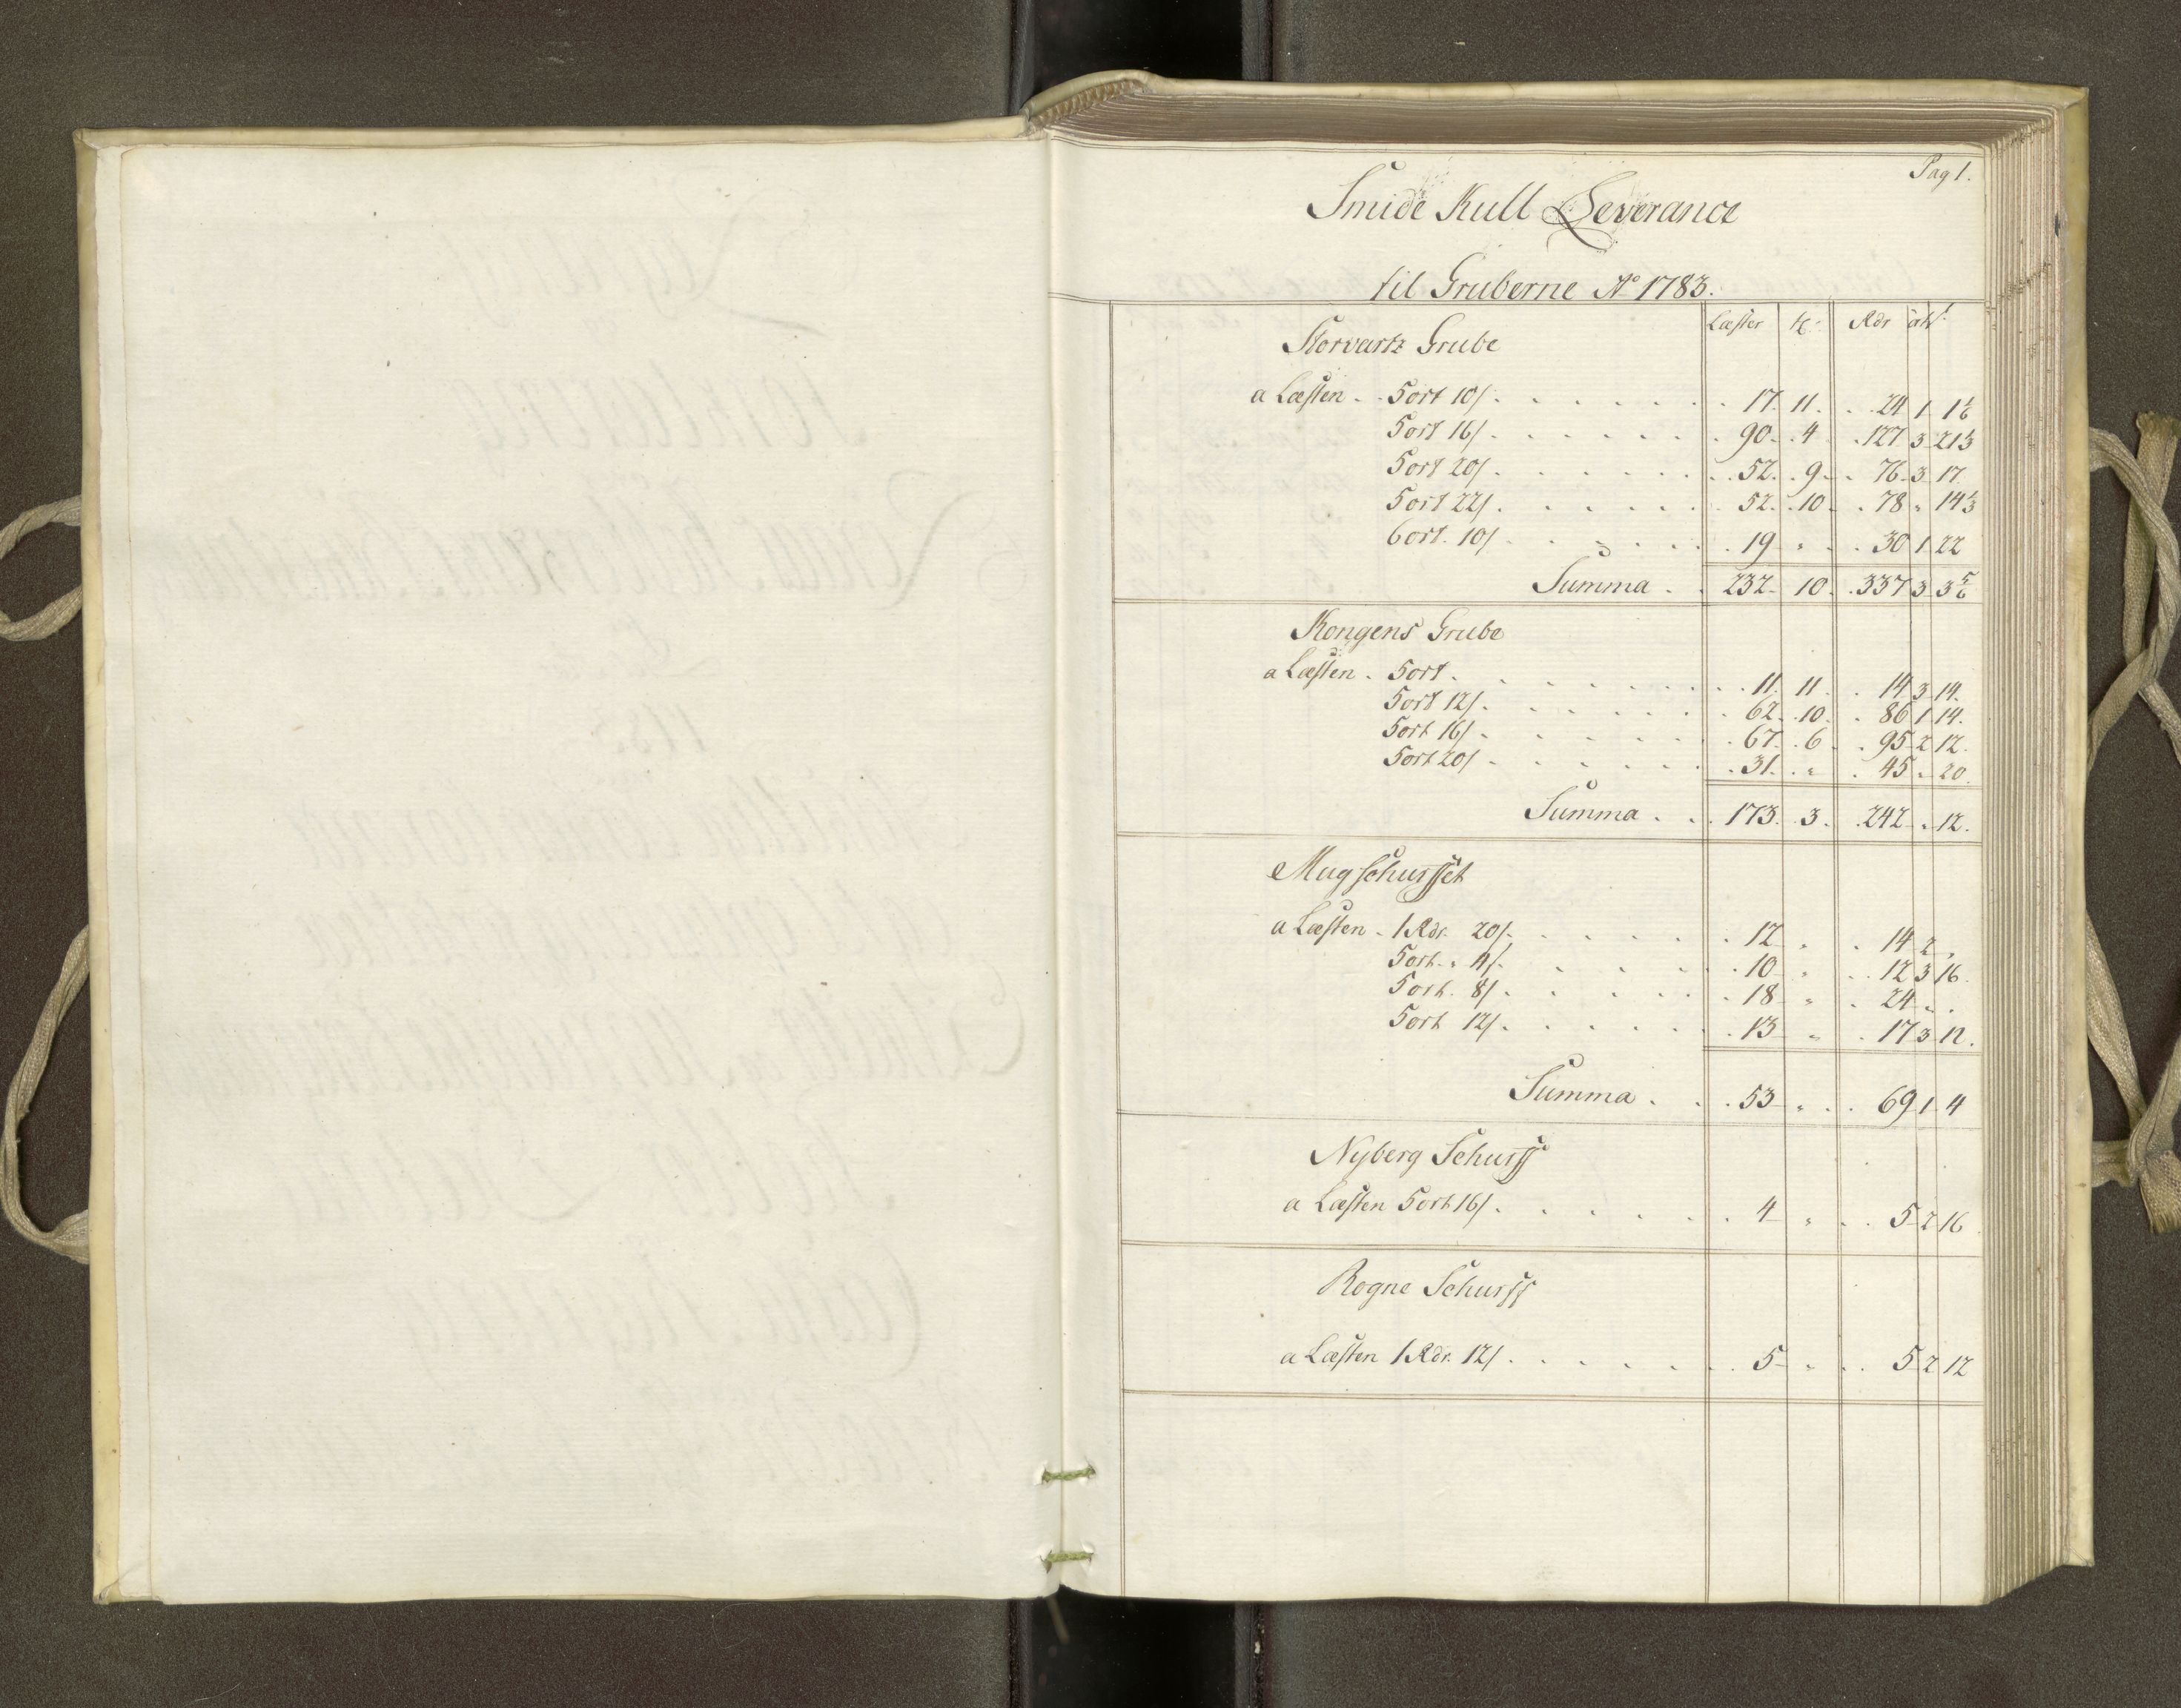 Pag 1.
Smide Kull Leverance
til Gruberne Ao 1783.
Læster | tr: | Rdr ort s:
Storvartz Grube
a Læsten . . 5 ort 10 s . . . 17. 11. . 24 1 1 1/6
5 ort 16 s . . . 90. 4 . 127 3 21 1/3
5 ort 20 s . . . 52. 9. . 76 3 17
5 ort 22 s . . . 52. 10. . 78 " 14 1/3
6 ort. 10 s . . . 19 " . 30 1 22
Summa . . 232. 10. 337 3 3 5/6
Kongens Grube
a Læsten . 5 ort . . . 11. 11. . 14 3 14.
5 ort 12 s . . . 62. 10. . 86 1 14.
5 ort 16 s . . . 67. 6 . 95 2 12.
5 ort 20 s . . . 31. " . 45 " 20.
Summa . . 173. 3. . 242 " 12.
Mug Schurffet
a Læsten . 1 Rdr. 20 s . . . 12 " . 14 2 "
5 ort " 4 s . . . 10 " . 12 3 16.
5 ort. 8 s . . . 18 " . 24 " "
5 ort 12 s . . . 13 " . 17 3 12.
Summa . . 53 " . 69 1 4
Nyberg Schurff
a Læsten 5 ort 16 s . . . 4 " . 5 2 16.
Rogne Schurff
a Læsten 1 Rdr. 12 s . . . 5 " . 5 2 12